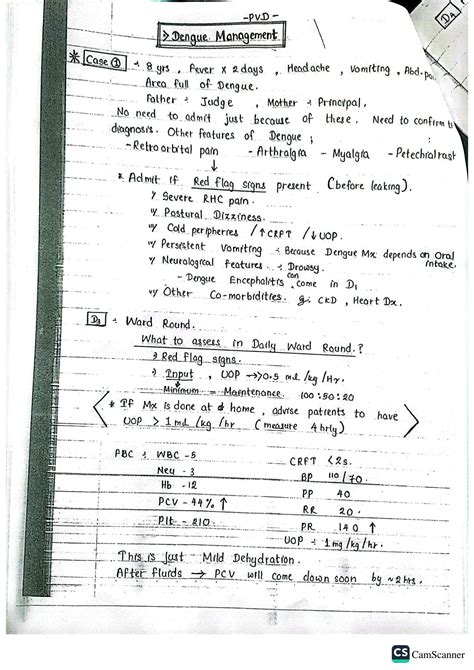 -PVD-
D4
> Dengue Management
* Case ① :- 8 yrs, Fever x 2 days, Headache, Vomiting, Abd. pain
Area full of Dengue.
Father :- Judge, Mother :- Principal.
No need to admit just because of these. Need to confirm
diagnosis. Other features of Dengue ;
- Retroorbital pain - Arthralgia - Myalgia - Petechial rash
↓
* Admit if Red flag signs present (before leaking).
i/ Severe RHC pain.
ii/ Postural Dizziness.
iii/ Cold peripherres / ↑CRFT / ↓UOP.
iv/ Persistent Vomiting :- Because Dengue Mx depends on Oral intake.
v/ Neurological features :- Drowsy.
- Dengue Encephalitis can come in D1
vi/ Other Co-morbidities. eg: CKD, Heart Dx.
D3 :- Ward Round.
What to assess in Daily Ward Round.?
> Red flag signs.
> Input, UOP →>0.5 ml/kg/Hr.
Minimum = Maintenance. 100:50:20
* If Mx is done at home, advise patients to have
UOP > 1 ml/kg/hr (measure 4 hrly)
WBC - 5
Neu - 3
Hb - 12
PCV - 44% ↑
Plt - 210.
CRFT <2s.
BP 110/70.
PP 40
RR 20.
PR 140 ↑
UOP :- 1 mg/kg/hr.
This is just Mild Dehydration.
After fluids → PCV will come down soon by ~2 hrs.
CS CamScanner